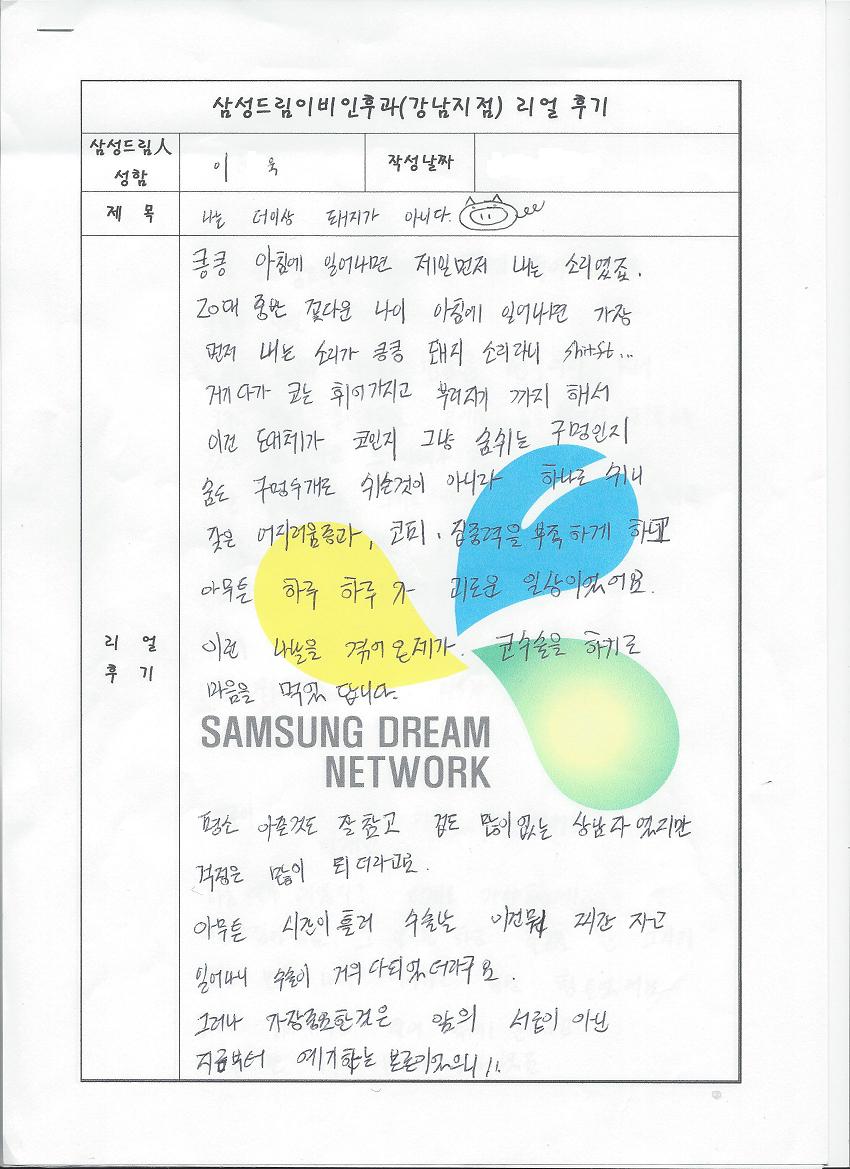 삼성드림이비인후과(강남지점) 리얼 후기
삼성드림人 성함
이 욱
작성날짜
제 목
나는 더이상 돼지가 아니다.
리 얼 후 기
킁킁 아침에 일어나면 제일먼저 내는 소리였죠.
20대 중반 꽃다운 나이 아침에 일어나면 가장
먼저 내는 소리가 킁킁 돼지 소리라니
거기다가 코는 휘어가지고 부러지기 까지 해서
이건 도대체가 코인지 그냥 숨쉬는 구멍인지
숨도 구멍두개로 쉬는것이 아니라 하나로 쉬니
잦은 어지러움증과, 코피, 집중력을 부족하게 하고
아무튼 하루 하루가 괴로운 일상이었어요.
이런 나날을 겪어온제가. 코수술을 하기로
마음을 먹었 답니다.
SAMSUNG DREAM
NETWORK
평소 아픈것도 잘 참고 겁도 많이없는 상남자 였지만
걱정은 많이 되더라고요.
아무튼 시간이 흘러 수술날 이건뭐 2시간 자고
일어나니 수술이 거의 다되었더라구요.
그러나 가장중요한것은 앞의 서론이 아닌
지금부터 얘기하는 본론이있으니 !!